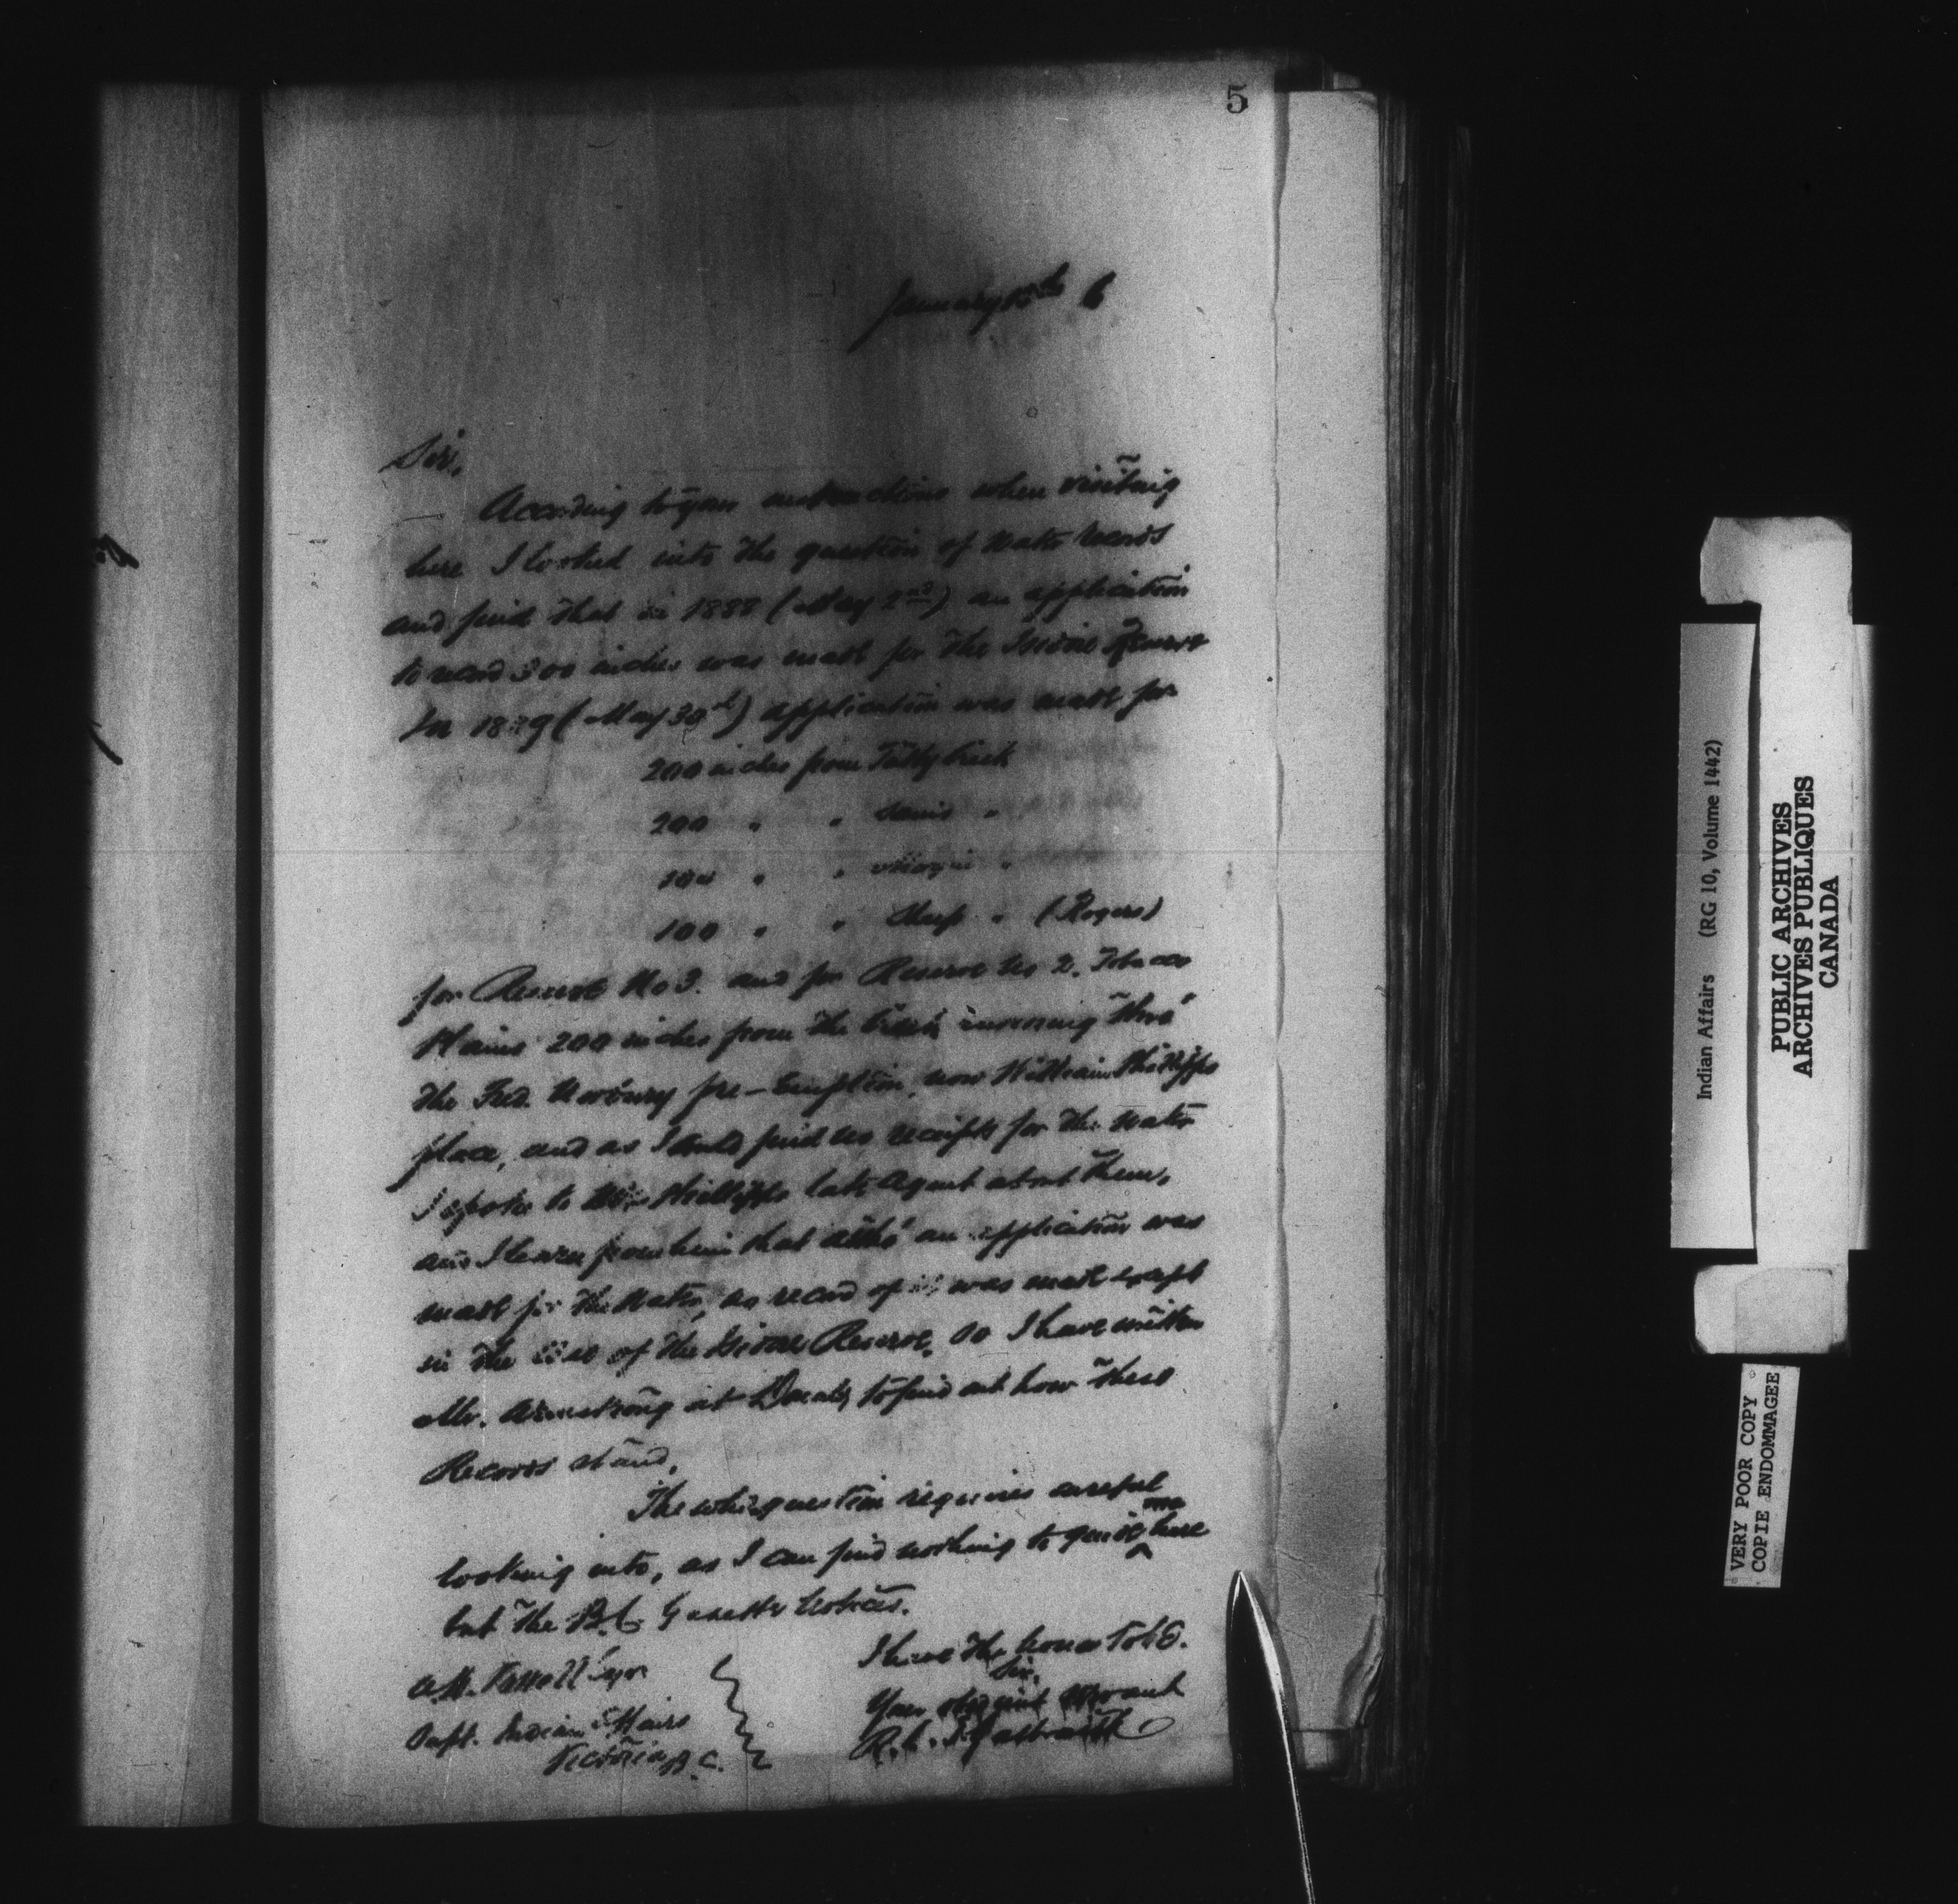 5
January
Sir,
According to your instructions when visiting
here I looked into the question of Water Records
and find that in 1888 (May 2nd) an application
to record 300 inches was made for the Isidore Reserve
In 1889 (May 30th) application was made for
200 inches from Creek
200 " "
100 " " "
100 " " Sheep " (Rogers)
for Reserve No 3. and for Reserve No 2. Tobacco
Plains 200 inches from the Creek running thro'
the Fred. Norbury pre-emption, now William Phillipps
place, and as I could find no receipts for the Water
I spoke to Mr. Phillipps late Agent about them,
and I learn from him that altho' an application was
made for the Water, no record of it was made except
in the case of the Isidore Reserve, so I have written
Mr. Armstrong at Donald, to find out how these
Records stand.
The whole question requires careful
looking into, as I can find nothing to guide me here
but the B.C. Gazette Notices.
I have the honor to be.
Sir,
Your obedient servant
R. L. T. Galbraith
A.W. Vowell Esqr
Supt. Indian Affairs
Victoria, B.C.
Indian Affairs (RG 10, Volume 1442)
PUBLIC ARCHIVES
ARCHIVES PUBLIQUES
CANADA
VERY POOR COPY
COPIE ENDOMMAGEE